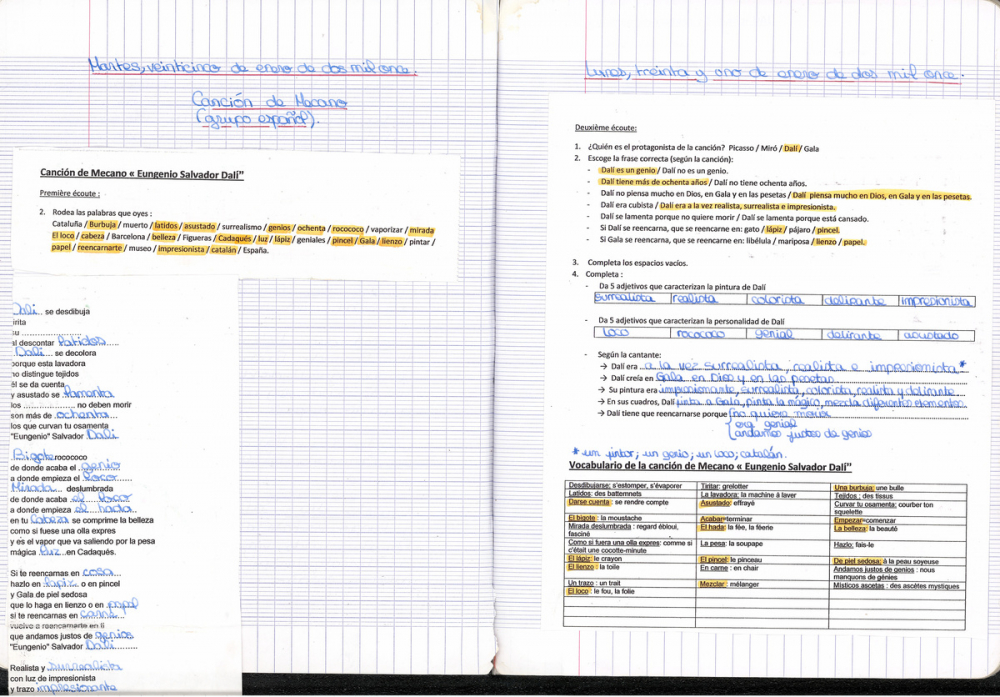 Martes, veinticinco de enero de dos mil once.
Canción de Mecano
(grupo español).
Canción de Mecano « Eungenio Salvador Dalí"
Première écoute :
2. Rodea las palabras que oyes :
Cataluña / Burbuja / muerto / latidos / asustado / surrealismo / genios / ochenta / rocococo / vaporizar / mirada
El loco / cabeza / Barcelona / belleza / Figueras / Cadaqués / luz / lápiz / geniales / pincel / Gala / lienzo / pintar /
papel / reencarnarte / museo / impresionista / catalán / España.
Dali... se desdibuja
irita
su ..................
al descontar latidos.....
Dali... se decolora
porque esta lavadora
no distingue tejidos
él se da cuenta
y asustado se lamenta
los .................... no deben morir
son más de .ochenta...
los que curvan tu osamenta
"Eungenio" Salvador Dali
Bigote rocococo
de donde acaba el .genio
a donde empieza el loco......
Mirada... deslumbrada
de donde acaba el loco
a donde empieza el..hada..
en tu cabeza se comprime la belleza
como si fuese una olla expres
y es el vapor que va saliendo por la pesa
mágica luz..en Cadaqués.
Si te reencarnas en cosa...
hazlo en lapiz.. o en pincel
y Gala de piel sedosa
que lo haga en lienzo o en papel
si te reencarnas en carne...
vuelve a reencarnarte en ti
que andamos justos de genios
"Eungenio" Salvador Dali..........
Realista y surrealista
con luz de impresionista
y trazo impresionante
Lunes, treinta y uno de enero de dos mil once.
Deuxième écoute:
1. ¿Quién es el protagonista de la canción? Picasso / Miró / Dalí / Gala
2. Escoge la frase correcta (según la canción):
- Dalí es un genio / Dalí no es un genio.
- Dalí tiene más de ochenta años / Dalí no tiene ochenta años.
- Dalí no piensa mucho en Dios, en Gala y en las pesetas / Dalí piensa mucho en Dios, en Gala y en las pesetas.
- Dalí era cubista / Dalí era a la vez realista, surrealista e impresionista.
- Dalí se lamenta porque no quiere morir / Dalí se lamenta porque está cansado.
- Si Dalí se reencarna, que se reencarne en: gato / lápiz / pájaro / pincel.
- Si Gala se reencarna, que se reencarne en: libélula / mariposa / lienzo / papel.
3. Completa los espacios vacíos.
4. Completa :
- Da 5 adjetivos que caracterizan la pintura de Dalí
surrealista realista colorista delirante impresionista
- Da 5 adjetivos que caracterizan la personalidad de Dalí
loco rocococo genial delirante asustado
- Según la cantante:
→ Dalí era ..a la vez surrealista, realista e impresionista*
→ Dalí creía en Gala, en Dios y en las pesetas
→ Su pintura era impresionante, surrealista, colorista, realista y delirante
→ En sus cuadros, Dalí pinta a Gala, pinta lo mágico, mezcla diferentes elementos
→ Dalí tiene que reencarnarse porque no quiere morir
era genial
andamos justos de genios
* un pintor; un genio; un loco; catalán.
Vocabulario de la canción de Mecano « Eungenio Salvador Dalí"
Desdibujarse: s'estomper, s'évaporer Tiritar: grelotter Una burbuja: une bulle
Latidos: des battements La lavadora: la machine à laver Tejidos : des tissus
Darse cuenta : se rendre compte Asustado: effrayé Curvar tu osamenta: courber ton
squelette
El bigote : la moustache Acabar=terminar Empezar=comenzar
Mirada deslumbrada : regard ébloui, El hada: la fée, la féerie La belleza: la beauté
fasciné
Como si fuera una olla expres: comme si La pesa: la soupape Hazlo: fais-le
c'était une cocotte-minute
El lápiz: le crayon El pincel: le pinceau De piel sedosa: à la peau soyeuse
El lienzo : la toile En carne : en chair Andamos justos de genios : nous
manquons de génies
Un trazo : un trait Mezclar: mélanger Místicos ascetas : des ascètes mystiques
El loco : le fou, la folie